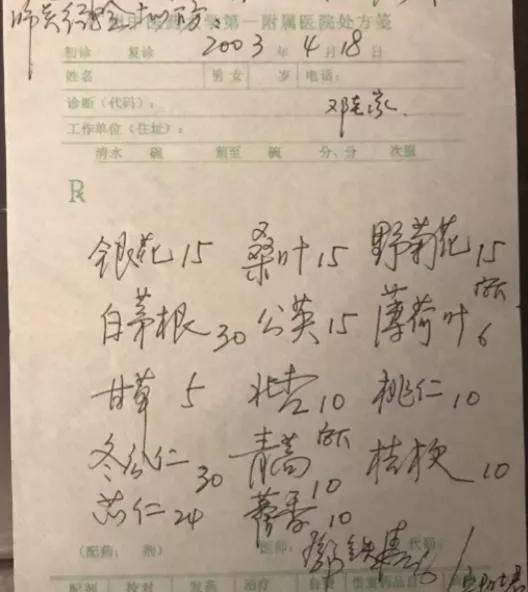 第一附属医院处方笺
初诊 复诊 2003 年 4 月 18 日
姓名 男 女 岁 电话：
诊断（代码）：
工作单位（住址）：
清水 碗 煎至 碗 分、分 次服
R
银花 15 桑叶 15 野菊花 15
白茅根 30 公英 15 薄荷叶 后下 6
甘草 5 北杏 10 桃仁 10
冬瓜仁 30 青蒿 后下 10 桔梗 10
苡仁 24 藿香 10
（配药： 剂） 医师： 代码：
配剂 校对 发药 治疗 自费 贵重药品自